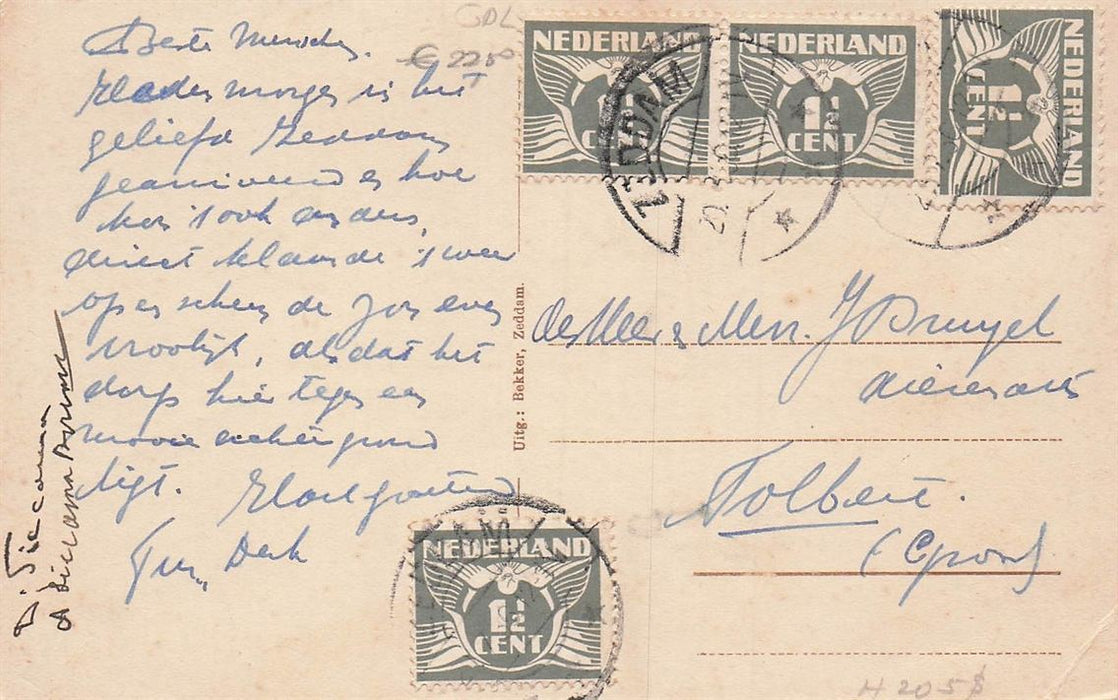 Beste Menschen.
morgen is het
geliefd Zeddam
gearriveerd en hoe
kon 't ook anders,
direct klaarde 't weer
op en scheen de zon even
vroolijk, als dat het
dorp hier tegen een
mooie achtergrond
ligt. Hart groeten
Derk
D. Siccama
A Siccama
GDL
€ 2250
NEDERLAND
1½
CENT
NEDERLAND
1½
CENT
NEDERLAND
1½
CENT
ZEDDAM
Uitg.: Bekker, Zeddam.
de Heer & Mevr. J Bruyel
dierenarts
Tolbert.
(Gron)
NEDERLAND
1½
CENT
H 205 $